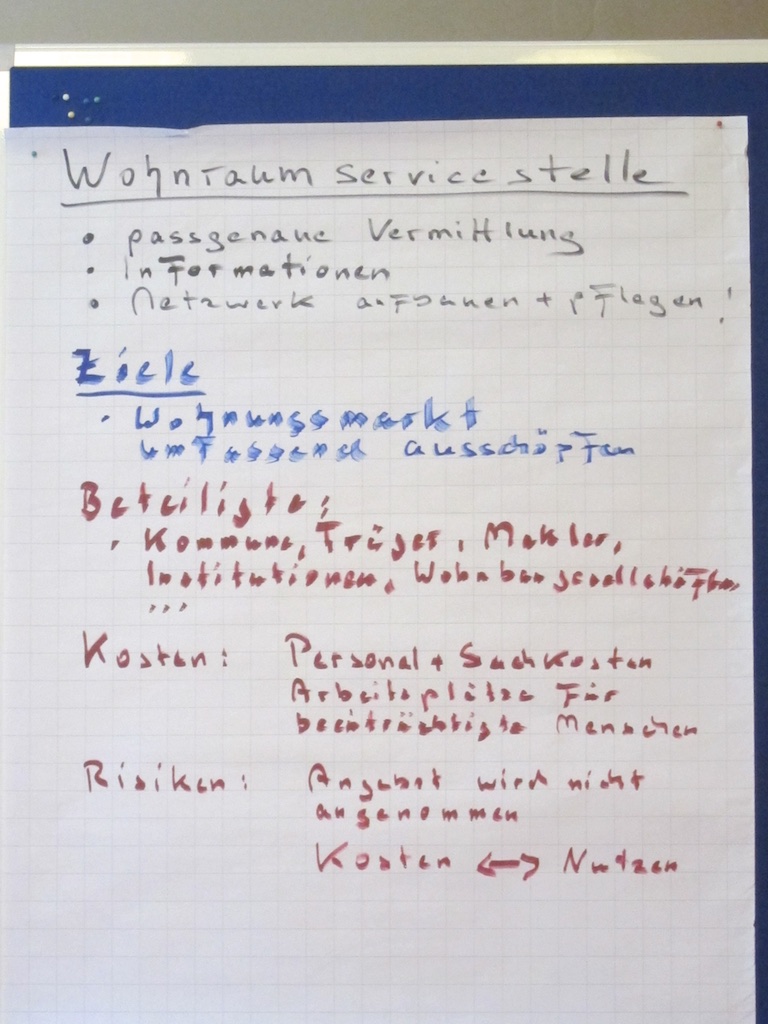 Wohnraumservicestelle
• passgenaue Vermittlung
• Informationen
• Netzwerk aufbauen + pflegen!
Ziele
• Wohnungsmarkt
umfassend ausschöpfen
Beteiligte:
• Kommune, Träger, Makler,
Institutionen, Wohnbaugesellschaften,
...
Kosten: Personal + Sachkosten
Arbeitsplätze für
beeinträchtigte Menschen
Risiken: Angebot wird nicht
angenommen
Kosten ↔ Nutzen